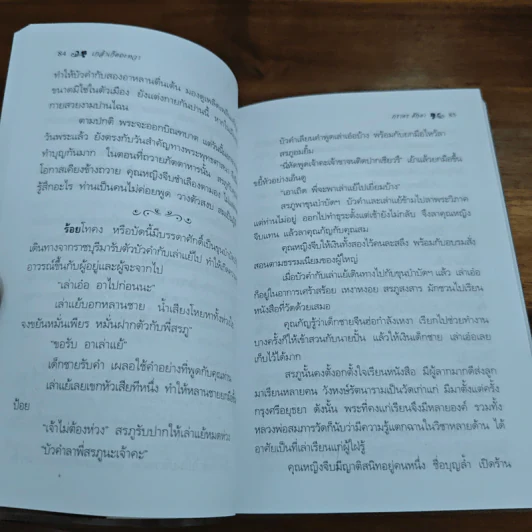 84
ทำให้บัวคำกับสองอาหลานตื่นเต้น มองดูเหลียว
ขณาดมิใช่ในตัวเมือง ยังแต่งกายกันปานนี้ หาก
กายสวยงามปานไฉน
ตามปกติ พระจะออกบิณฑบาต แต่วันนี้
วันพระแล้ว ยังตรงกับวันสำคัญทางพระพุทธ
ทำบุญกันมาก ในตอนที่ถวายภัตตาหารนั้น
โอกาสเคียงข้างถวาย คุณหญิงจีบชำเลืองตามอง
รู้สึกอะไร ท่านเป็นคนไม่ค่อยพูด วางตัวสงบ
ร้อยโทคง หรือบัดนี้มีบรรดาศักดิ์เป็นขุน
เดินทางจากราชบุรีมารับตัวบัวคำกับเล่าแย้ไป ทำให้
อาวรณ์ขึ้นกับผู้อยู่และผู้จะจากไป
"เล่าเอ๋อ อาไปก่อนนะ"
เล่าแย้บอกหลานชาย น้ำเสียงโหยหา
จงขยันหมั่นเพียร หมั่นฝากตัวกับพี่สรภู"
"ขอรับ อาเล่าแย้"
เด็กชายรับคำ เผลอใช้คำอย่างที่พูดกับคุณ
เล่าแย้เลยเขกหัวเสียทีหนึ่ง ทำให้หลานชาย
ป้อย
"เจ้าไม่ต้องห่วง" สรภูรับปากให้เล่าแย้หมดห่วง
"บัวคำลาพี่สรภูนะเจ้าคะ"
85
บัวคำเลียนคำพูดเล่าเอ๋อบ้าง พร้อมกับยกมือไหว้ลา
สรภูอมยิ้ม
"นี่ติดพูดเจ้าคะเจ้าขาจนติดปากเชียวรึ" เย้าแล้วยกมือขึ้น
ขยี้หัวอย่างเอ็นดู
"เอาเถิด พี่จะพาเล่าแย้ไปเยี่ยมบ้าง"
สรภูพาขุนปาบัดฯ บัวคำและเล่าแย้ข้ามไปลาพระวิภาค
แต่ท่านไม่อยู่ ออกไปทำธุระตั้งแต่เช้ายังไม่กลับ จึงลาคุณหญิง
จีบแทน แล้วลาคุณกัญกับคุณสม
คุณหญิงจีบให้เงินทั้งสองไว้คนละสลึง พร้อมกับอบรมสั่ง
สอนตามธรรมเนียมของผู้ใหญ่
เมื่อบัวคำกับเล่าแย้เดินทางไปกับขุนปาบัดฯ แล้ว เล่าเอ๋อ
ก็อยู่ในอาการเศร้าสร้อย เหงาหงอย สรภูสงสาร มักชวนไปเรียน
หนังสือที่วัดด้วยเสมอ
คุณกัญรู้ว่าเด็กชายจีนฮ่อกำลังเหงา เรียกไปช่วยทำงาน
บางครั้งก็ให้เข้าสวนกับนายปั้น แล้วให้เงินเด็กชาย เล่าเอ๋อเลย
เก็บไว้ได้มาก
สรภูนั้นคงตั้งอกตั้งใจเรียนหนังสือ มีผู้ลากมากดีส่งลูก
มาเรียนหลายคน วังหงษ์รัตนารามเป็นวัดเก่าแก่ มีมาตั้งแต่ครั้ง
กรุงศรีอยุธยา ดังนั้น พระที่คงแก่เรียนจึงมีหลายองค์ รวมทั้ง
หลวงพ่อสมภารวัดก็นับว่ามีความรู้แตกฉานในวิชาหลายด้าน ได้
อาศัยเป็นที่เล่าเรียนแก่ผู้ใฝ่รู้
คุณหญิงจีบมีญาติสนิทอยู่คนหนึ่ง ชื่อบุญล้ำ เปิดร้าน